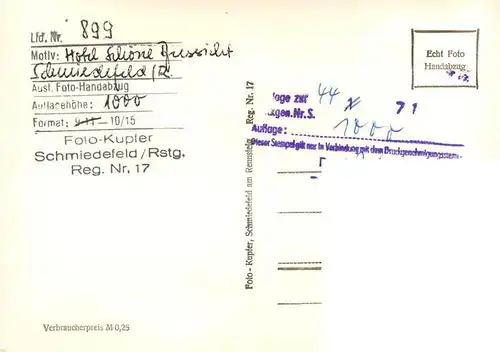 Lfd. Nr. 899
Motiv: Hotel Schöne Aussicht
Schmiedefeld/R.
Ausf. Foto-Handabzug
Auflagehöhe: 1000
Format: 9-14 10/15
Foto-Kupfer
Schmiedefeld/Rstg.
Reg. Nr. 17
Verbraucherpreis M 0,25
Foto - Kupfer, Schmiedefeld am Rennsteig Reg. Nr. 17
Echt Foto
Handabzug
lage zur 44 71
gen.Nr.S.
Auflage: 1000
Dieser Stempel gilt nur in Verbindung mit dem Druckgenehmigungsstem-